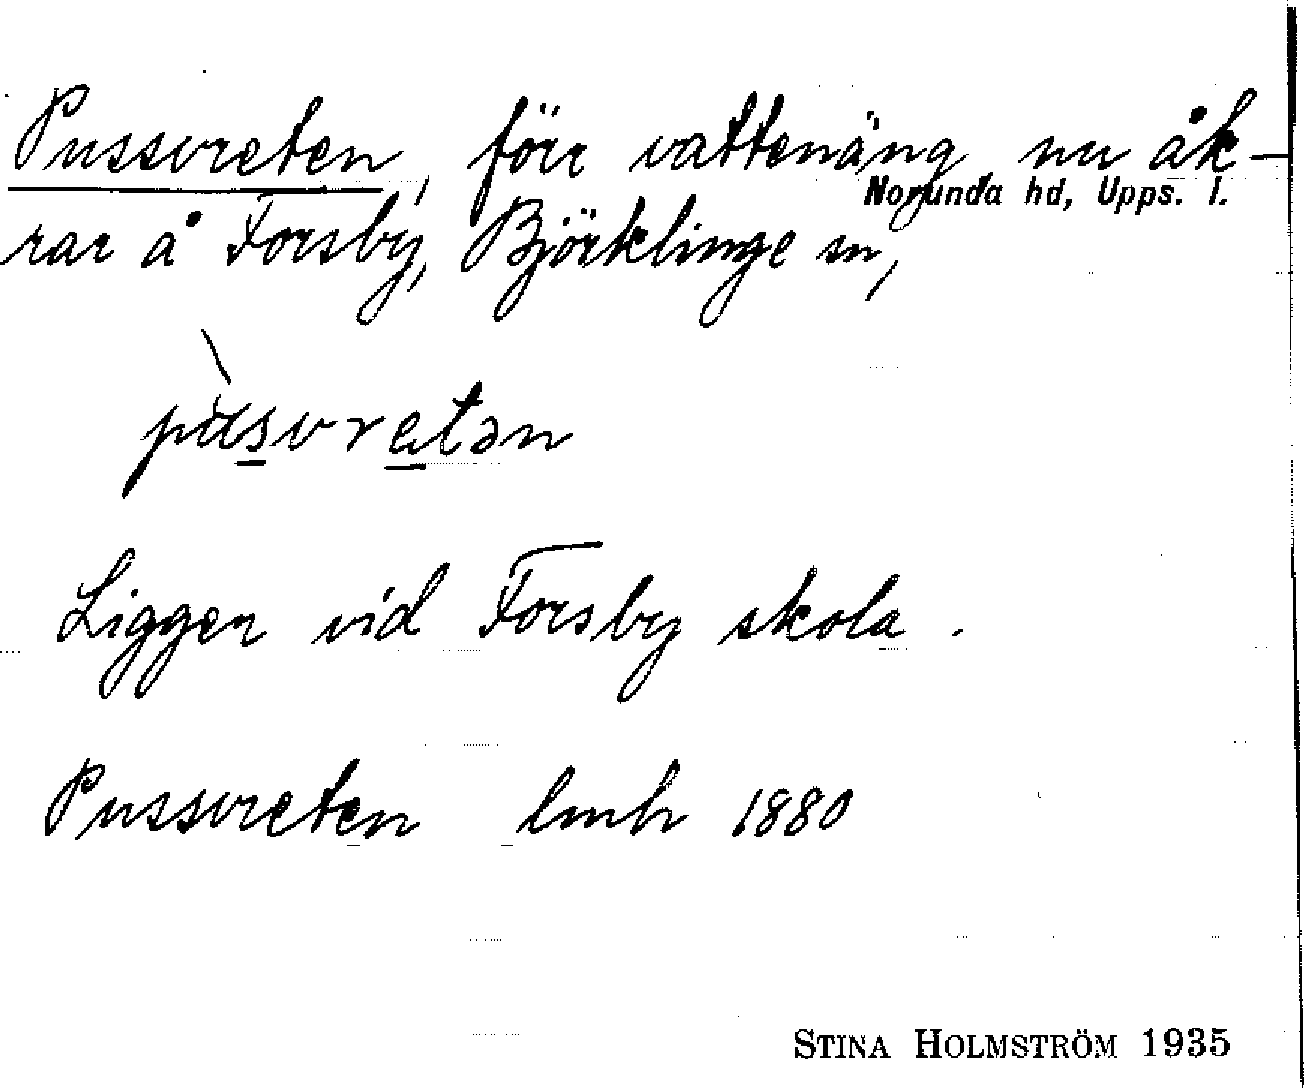 Pussvreten, förr vattenäng nu åk-
Norunda hd, Upps. l.
rar å Forsby, Björklinge sn,
pùsvretən
Ligger vid Forsby skola.
Pussvreten lmh 1880
STINA HOLMSTRÖM 1935